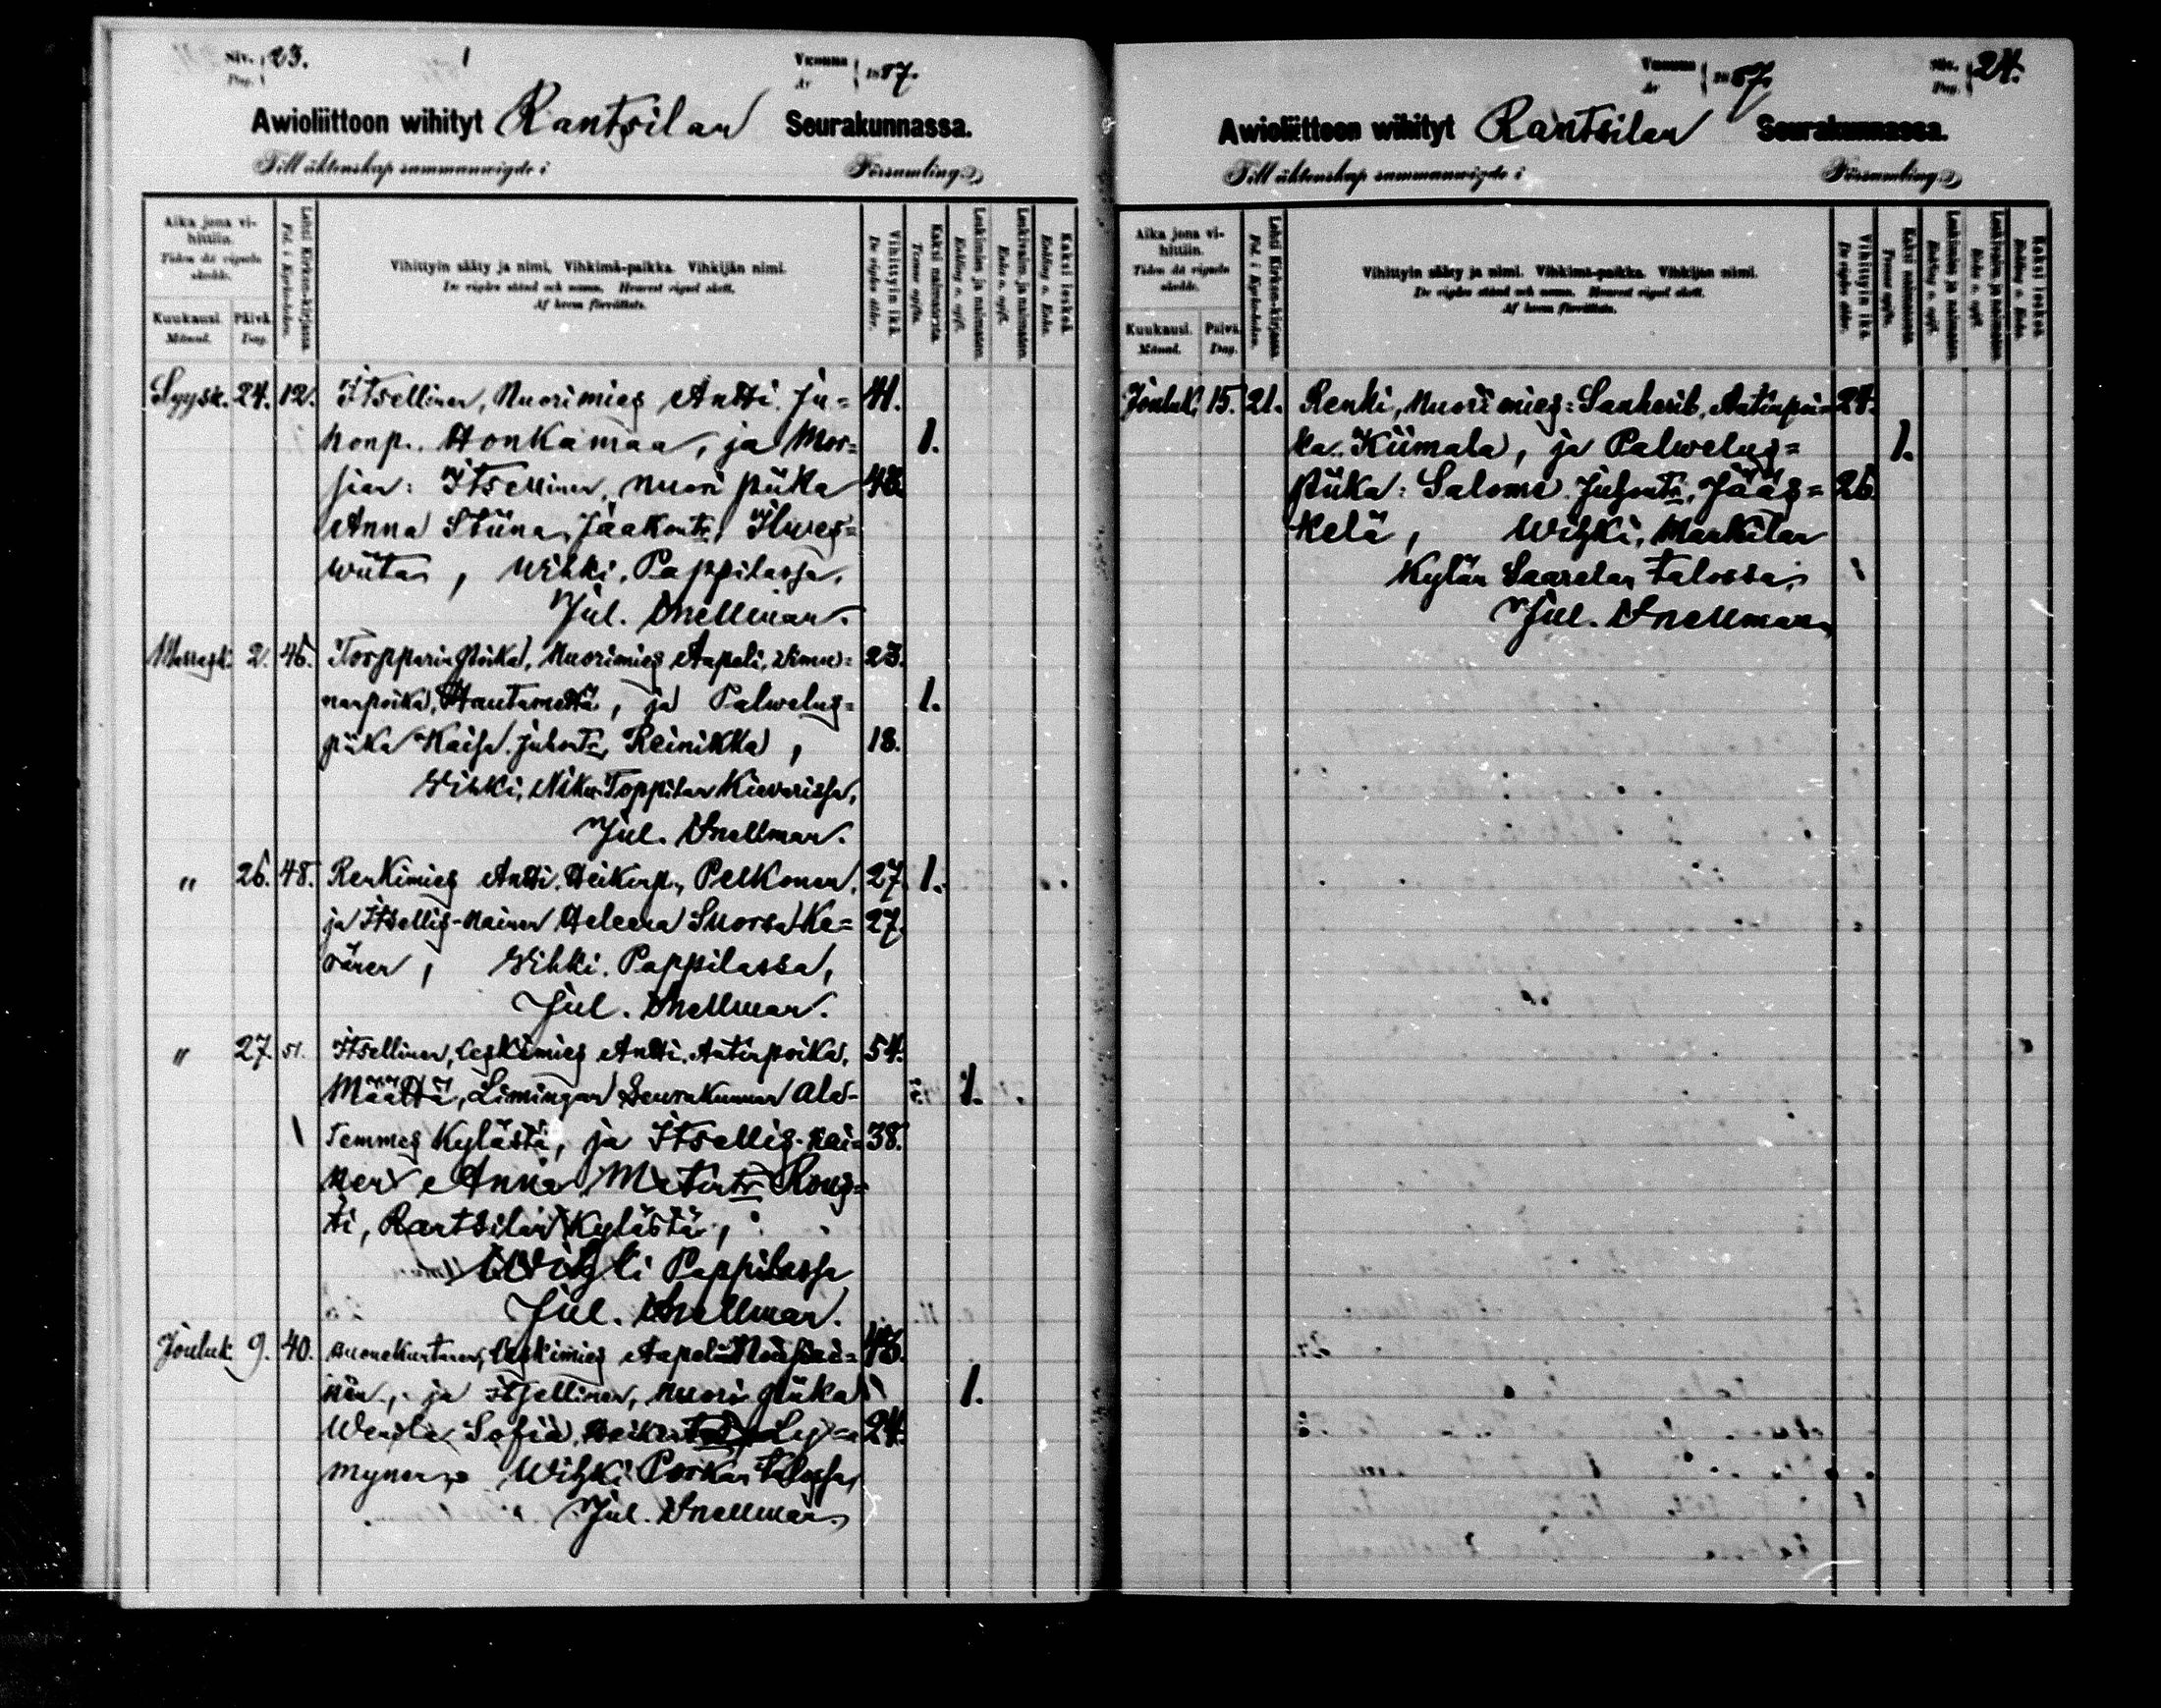 Siv. Pag. 23.
Vuonna År 1887.
Awioliittoon wihityt Rantsilan Seurakunnassa.
Till äktenskap sammanvigde i Församling.
Aika jona vihittiin.
Tiden då vigseln skedde.
Kuukausi. Månad.
Päivä. Dag.
Lehti Kirkon-kirjassa.
Fol. i Kyrkoboken.
Vihittyin sääty ja nimi. Vihkimä-paikka. Vihkijän nimi.
De vigdas stånd och namn. Hvarest vigsel skett.
Af hvem förrättats.
Vihittyin ikä.
De vigdas ålder.
Kaksi naimatonta.
Tvenne ogifta.
Leskimies ja naimaton.
Enkling o. ogift.
Leskivaimo ja naimaton.
Enka o. ogift.
Kaksi leskeä.
Enkling o. Enka.
Syysk. 24. 12. Itsellinen, Nuorimies Antti Ju= 41.
honp. Honkamaa, ja Mor= 1.
sian: Itsellinen, nuori piika 42.
Anna Stiina Jaakontr. Ilwes=
wiita, Wihki, Pappilassa,
Jul. Snellman.
Marrask. 2. 45. Torpparin poika, Nuorimies Aapeli, Simu= 23.
nanpoika, Hautamettä, ja Palwelus= 1.
piika Kaisa Juhontr. Reinikka, 18.
Wihki, Toppilan Kiewarissa,
Jul. Snellman.
" 26. 48. Renkimies Antti Heikinp., Pelkonen, 27. 1.
ja Itsellis-Nainen Heleena Suorsa Ke= 27.
ränen, Wihki. Pappilassa,
Jul. Snellman.
" 27. 51. Itsellinen, Leskimies Antti Antinpoika, 54.
Määttä, Limingan Seurakunnan Ala- 1.
Temmes Kylästä, ja Itsellis-nai= 38.
nen Anna Matintr Rous=
ti, Rantsilan Kylästä,
Wihki Pappilassa
Jul. Snellman.
Jouluk. 9. 40. Suonekuntanen, Leskimies Aapeli Nousiai= 43.
nän, ja itsellinen, nuori piika 1.
Wendla Sofia, Heikintr, Ly= 24.
mynen, Wihki Porkan talossa,
Jul. Snellman.
Vuonna År 1887.
Siv. Pag. 24.
Awioliittoon wihityt Rantsilan Seurakunnassa.
Till äktenskap sammanvigde i Församling.
Aika jona vihittiin.
Tiden då vigseln skedde.
Kuukausi. Månad.
Päivä. Dag.
Lehti Kirkon-kirjassa.
Fol. i Kyrkoboken.
Vihittyin sääty ja nimi. Vihkimä-paikka. Vihkijän nimi.
De vigdas stånd och namn. Hvarest vigsel skett.
Af hvem förrättats.
Vihittyin ikä.
De vigdas ålder.
Kaksi naimatonta.
Tvenne ogifta.
Leskimies ja naimaton.
Enkling o. ogift.
Leskivaimo ja naimaton.
Enka o. ogift.
Kaksi leskeä.
Enkling o. Enka.
Jouluk. 15. 21. Renki, Nuorimies: Sanherib, Antinpoi= 24.
ka. Kiimala, ja Palwelus= 1.
piika: Salome Juhontr, Jääs= 26.
kelä, Wihki, Mankilan
Kylän Saarelan talossa,
Jul. Snellman